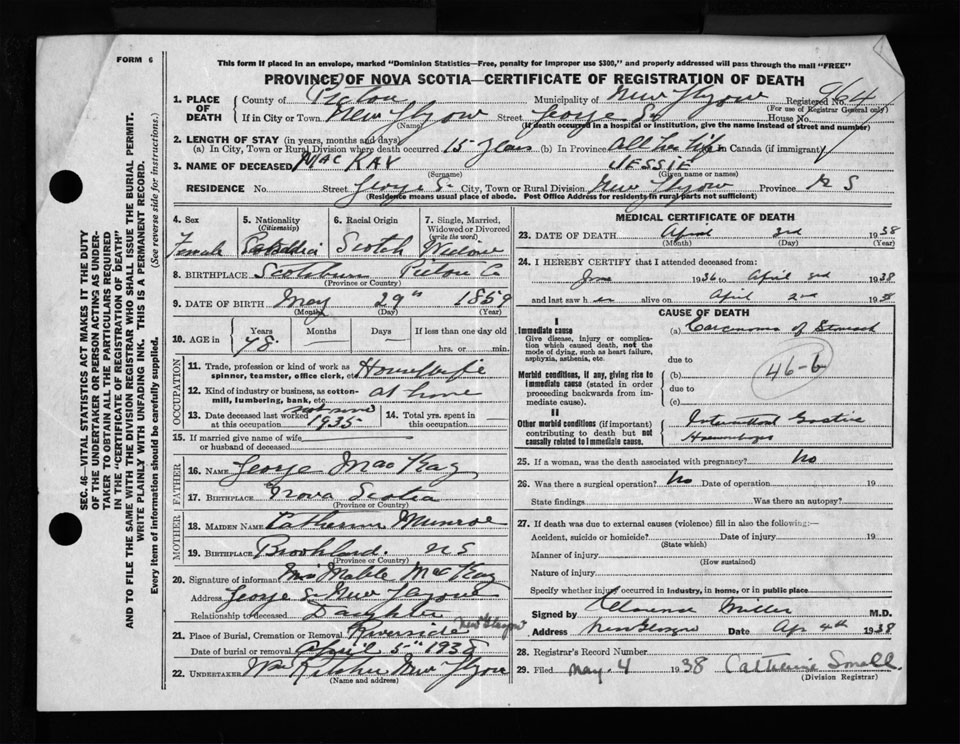 FORM 6
This form if placed in an envelope, marked "Dominion Statistics—Free, penalty for improper use $300," and properly addressed will pass through the mail "FREE"
PROVINCE OF NOVA SCOTIA—CERTIFICATE OF REGISTRATION OF DEATH
1. PLACE OF DEATH
County of Pictou Municipality of New Glasgow Registered No. 964
(For use of Registrar General only)
If in City or Town New Glasgow Street George St House No.
(Name) (If death occurred in a hospital or institution, give the name instead of street and number)
2. LENGTH OF STAY (in years, months and days)
(a) In City, Town or Rural Division where death occurred 15 years (b) In Province All her life in Canada (if immigrant)
3. NAME OF DECEASED MACKAY JESSIE
(Surname) (Given name or names)
RESIDENCE No. Street George St City, Town or Rural Division New Glasgow Province N S
(Residence means usual place of abode. Post Office Address for residents in rural parts not sufficient)
4. Sex
Female
5. Nationality
(Citizenship)
6. Racial Origin
Scotch
7. Single, Married, Widowed or Divorced
(write the word)
Widow
8. BIRTHPLACE Scotsburn Pictou Co
(Province or Country)
9. DATE OF BIRTH May 29th 1859
(Month) (Day) (Year)
10. AGE in
Years
78
Months
—
Days
—
If less than one day old
hrs. or min.
OCCUPATION
11. Trade, profession or kind of work as spinner, teamster, office clerk, etc. Housewife
12. Kind of industry or business, as cotton-mill, lumbering, bank, etc. at home
13. Date deceased last worked at this occupation 1935
14. Total yrs. spent in this occupation
15. If married give name of wife or husband of deceased
FATHER
16. NAME George MacKay
17. BIRTHPLACE Nova Scotia
(Province or Country)
MOTHER
18. MAIDEN NAME Catherine Munroe
19. BIRTHPLACE N S
(Province or Country)
20. Signature of informant Mable MacKay
Address George St New Glasgow
Relationship to deceased Daughter
21. Place of Burial, Cremation or Removal Riverside New Glasgow
Date of burial or removal April 5th 1938
22. UNDERTAKER New Glasgow
(Name and address)
MEDICAL CERTIFICATE OF DEATH
23. DATE OF DEATH April 3rd 1938
(Month) (Day) (Year)
24. I HEREBY CERTIFY that I attended deceased from:
June 1936 to April 3rd 1938
and last saw her alive on April 2nd 1938
CAUSE OF DEATH
I
Immediate cause
Give disease, injury or complication which caused death, not the mode of dying, such as heart failure, asphyxia, asthenia, etc.
(a) Carcinoma of Stomach
due to
Morbid conditions, if any, giving rise to immediate cause (stated in order proceeding backwards from immediate cause).
(b)
due to
(c)
46-b
II
Other morbid conditions (if important) contributing to death but not causally related to immediate cause.
Intermittent Gastric
Hemorrhages
25. If a woman, was the death associated with pregnancy? No
26. Was there a surgical operation? No Date of operation 19
State findings Was there an autopsy?
27. If death was due to external causes (violence) fill in also the following:—
Accident, suicide or homicide? Date of injury 19
(State which)
Manner of injury
(How sustained)
Nature of injury
Specify whether injury occurred in industry, in home, or in public place
Signed by Clarence Miller M.D.
Address New Glasgow Date Apr 4th 1938
28. Registrar's Record Number
29. Filed May 4 1938 Catherine Small.
(Division Registrar)
SEC. 46—VITAL STATISTICS ACT MAKES IT THE DUTY
OF THE UNDERTAKER OR PERSON ACTING AS UNDER-
TAKER TO OBTAIN ALL THE PARTICULARS REQUIRED
IN THE "CERTIFICATE OF REGISTRATION OF DEATH"
AND TO FILE THE SAME WITH THE DIVISION REGISTRAR WHO SHALL ISSUE THE BURIAL PERMIT.
WRITE PLAINLY WITH UNFADING INK. THIS IS A PERMANENT RECORD.
Every item of information should be carefully supplied. (See reverse side for instructions.)